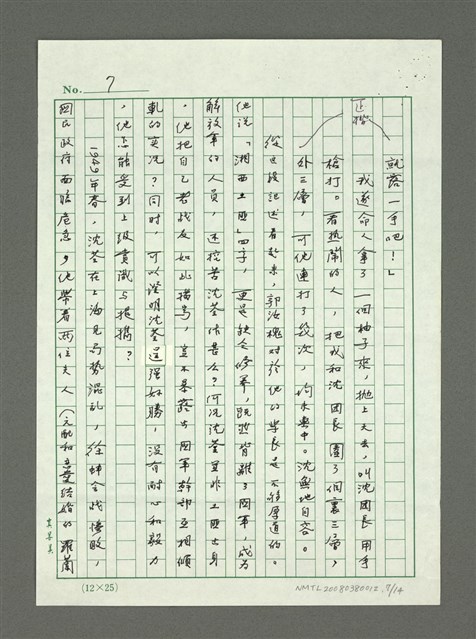 No. 7
就露一手吧！」
我遂命人拿了一個柚子來，拋上天去，叫沈團長用手
槍打。看熱鬧的人，把我和沈團長圍了個裏三層，
外三層，可他連打了幾次，均未擊中。沈無地自容。
從這段記述看起來，郭汝槐對於他的學長是不夠厚道的。
他說「湘西土匪」四字，更是缺乏修養，既然背離了國軍，成為
解放軍的人員，還挖苦沈荃作甚么？何況沈荃並非土匪出身
。他把自己老戰友如此描寫，豈不暴露出國軍幹部互相傾
軋的实况？同时，可以證明沈荃逞强好勝，沒有耐心和毅力
，他怎能受到上級賞識与提攜？
1949年春，沈荃在上海見局勢混乱，徐蚌会战慘敗，
國民政府面臨危急，他帶着两位夫人（元配和
结婚的羅蘭
(12×25)
NMTL20080380012 7/14